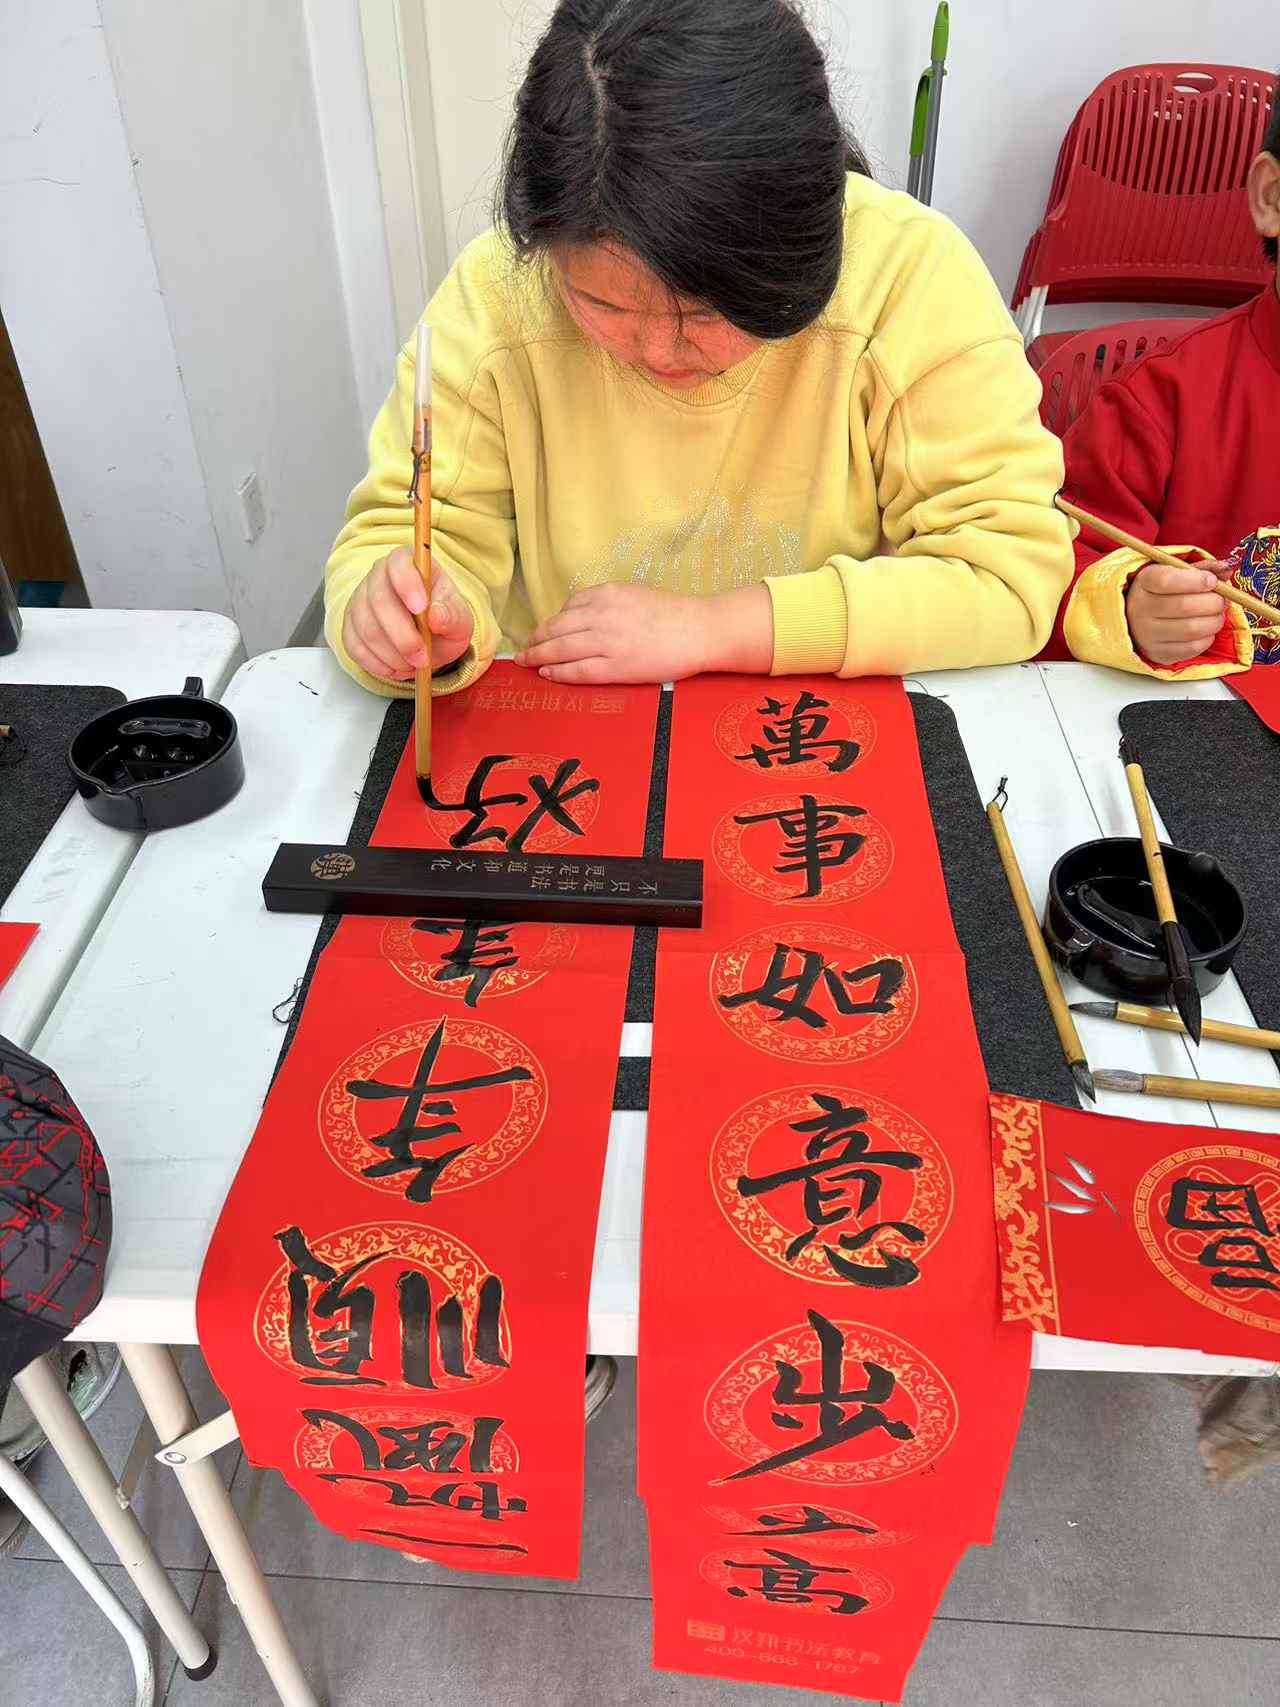 萬事如意步步高
汉翔书法教育
400-666-1767
一帆風順年年好
汉翔书法教
不只是书法
更是书道和文化